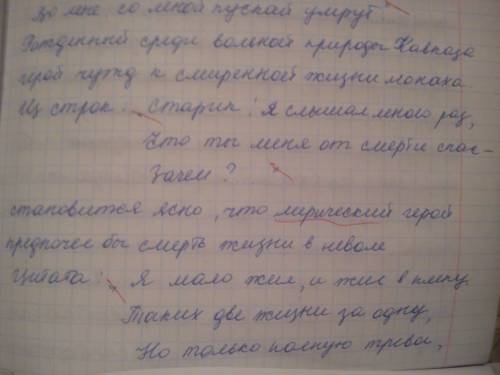 Во мне, со мной пускай умрут!
Рожденный среди вольной природы Кавказа
герой чужд к смиренной жизни монаха.
Из строк: Старик! Я слышал много раз,
Что ты меня от смерти спас –
Зачем?
становится ясно, что лирический герой
предпочел бы смерть жизни в неволе
Цитата: Я мало жил, и жил в плену.
Таких две жизни за одну,
Но только полную тревог,